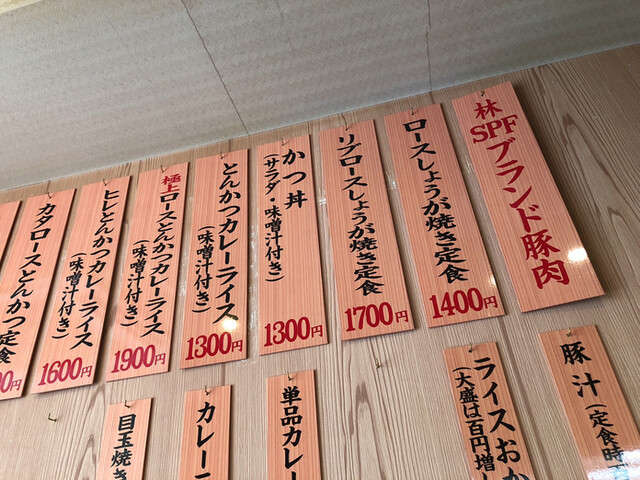 林
SPFブランド豚肉
ロースしょうが焼き定食
1400円
リブロースしょうが焼き定食
1700円
かつ丼
(サラダ・味噌汁付き)
1300円
とんかつカレーライス
(味噌汁付き)
1300円
極上ロースとんかつカレーライス
(味噌汁付き)
1900円
ヒレとんかつカレーライス
(味噌汁付き)
1600円
カタロースとんかつ定食
00円
豚汁
(定食時
ライスおか
(大盛は百円増
単品カレー
カレー
目玉焼き